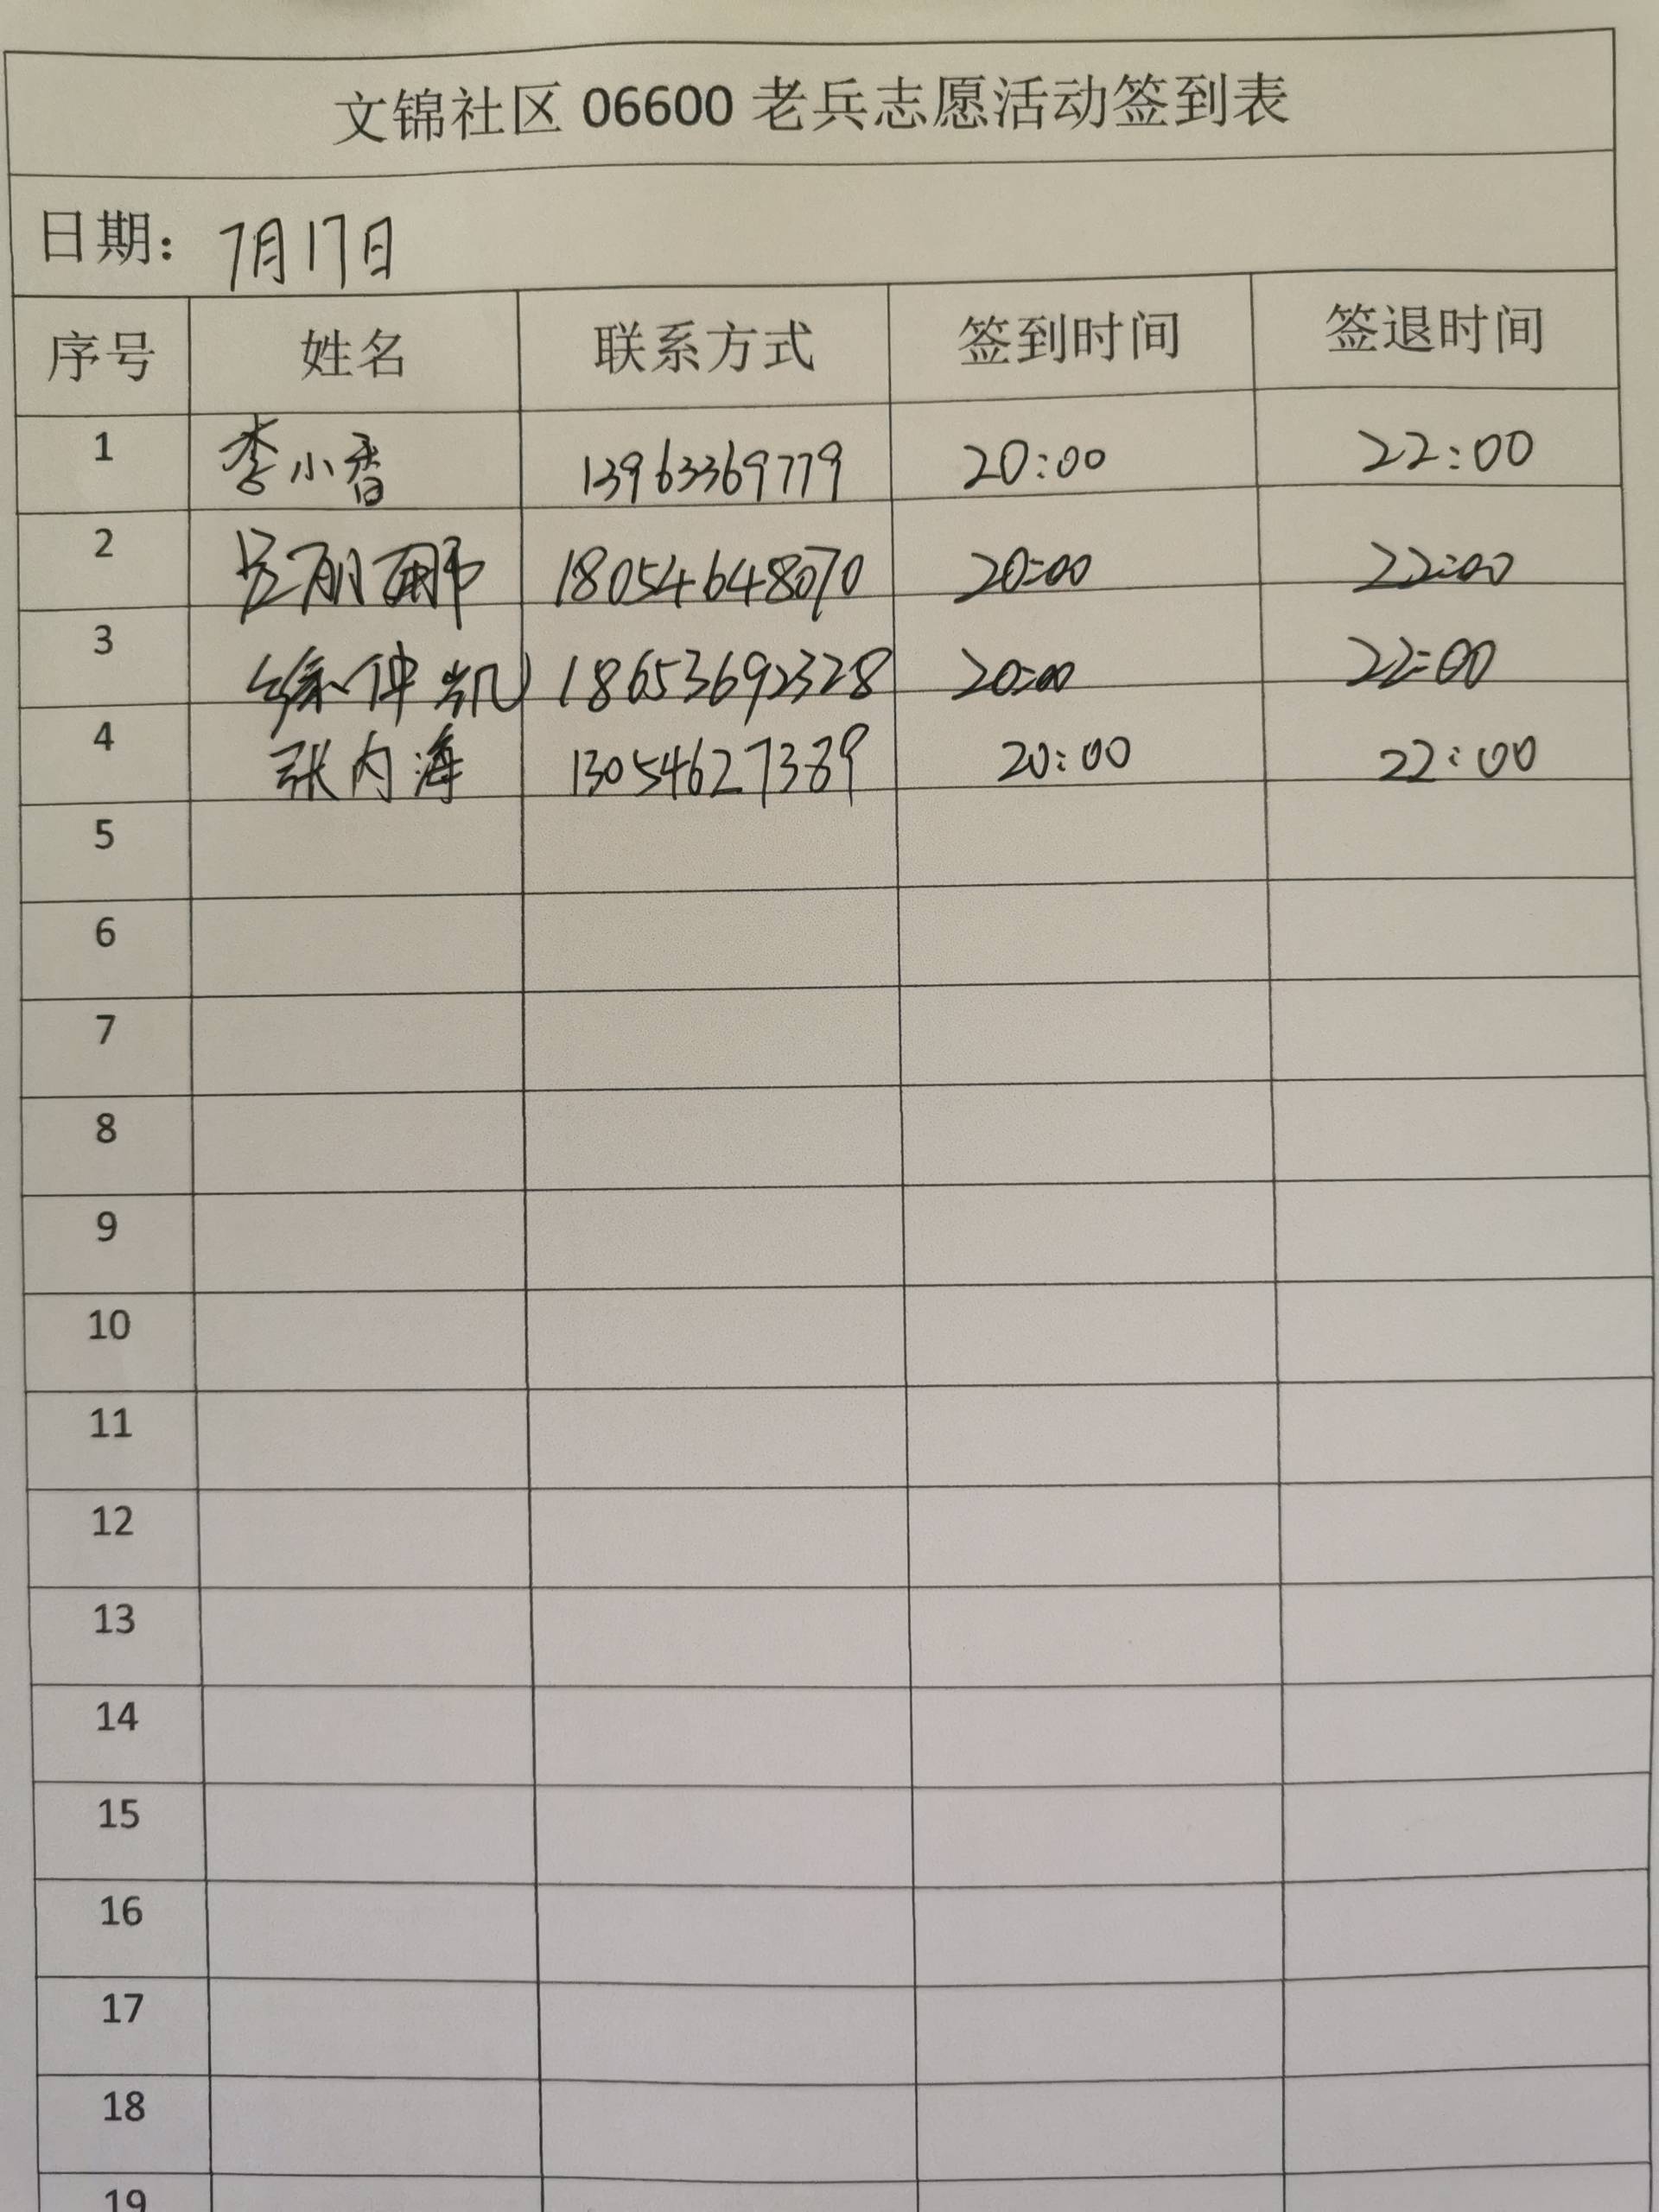 文锦社区 06600 老兵志愿活动签到表
日期：7月17日
序号 姓名 联系方式 签到时间 签退时间
1 李小香 13963369779 20:00 22:00
2 18054648070 20:00 22:00
3 徐仲凯 18653692328 20:00 22:00
4 张内海 13054627389 20:00 22:00
5
6
7
8
9
10
11
12
13
14
15
16
17
18
19